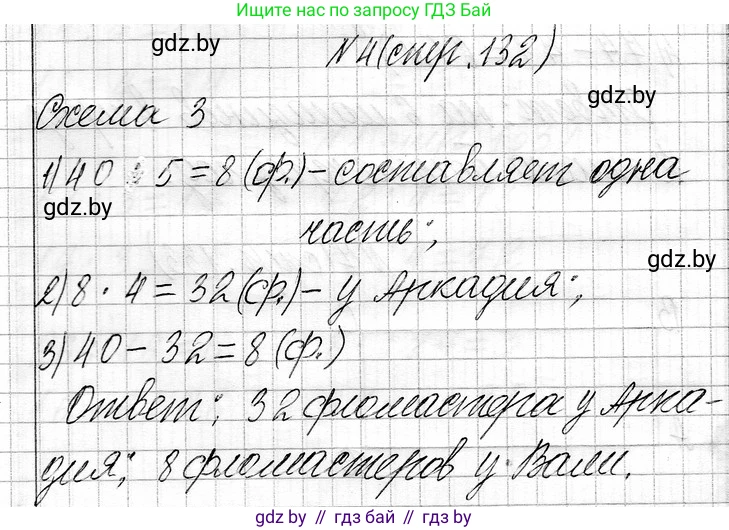 Ищите нас по запросу ГДЗ Бай
gdz.by
N 4 (стр. 132)
gdz.by
Схема 3
1) 40 : 5 = 8 (ф.) - составляет одна
gdz.by
часть;
gdz.by
2) 8 · 4 = 32 (ф.) - у Аркадия;
3) 40 - 32 = 8 (ф.)
Ответ: 32 фломастера у Арка-
дия; 8 фломастеров у Вали.
gdz.by // гдз бай // gdz.by